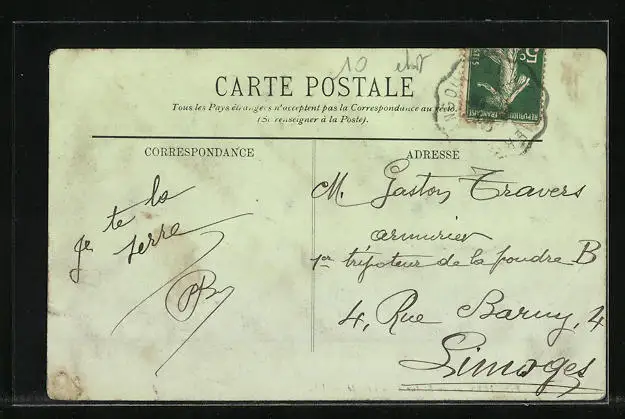 10
CARTE POSTALE
Tous les Pays étrangers n'acceptent pas la Correspondance au verso.
(Se renseigner à la Poste).
CORRESPONDANCE
je te la
serre
ADRESSE
M. Gaston Travers
armurier
1er tripoteur de la poudre B
4, Rue Barny, 4
Limoges
5
REPUBLIQUE FRANÇAISE